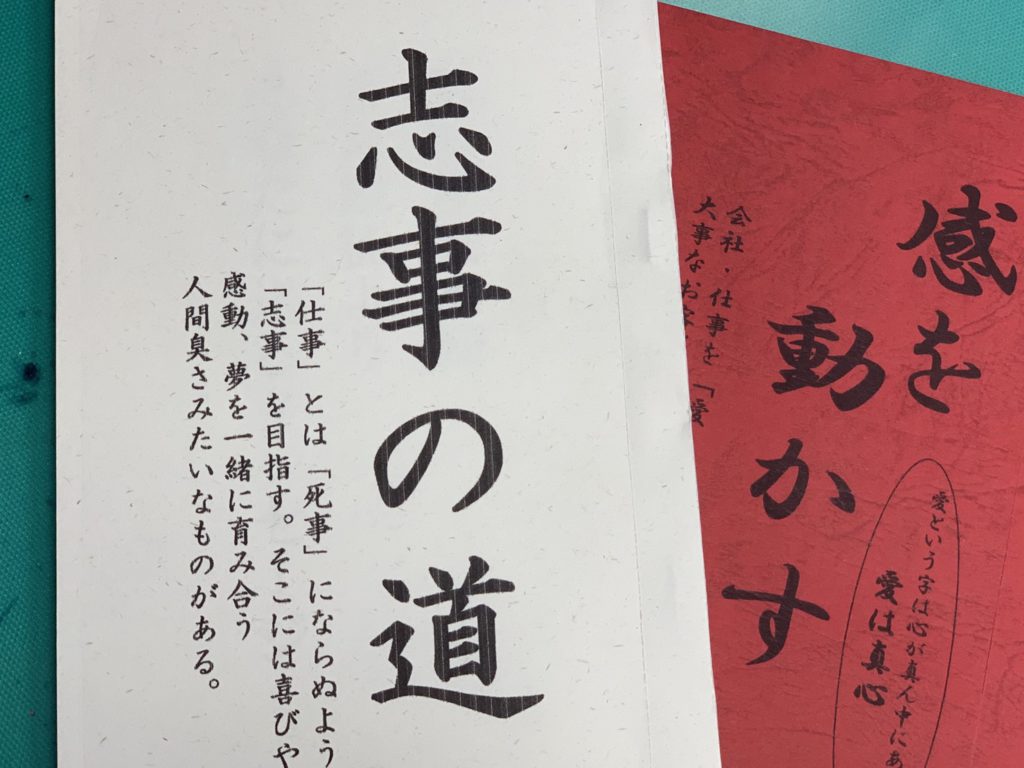 志事の道
「仕事」とは「死事」にならぬよう
「志事」を目指す。そこには喜びや
感動、夢を一緒に育み合う
人間臭さみたいなものがある。
感を
動かす
会社・仕事を「愛
大事なお客
愛という字は心が真ん中にあ
愛は真心